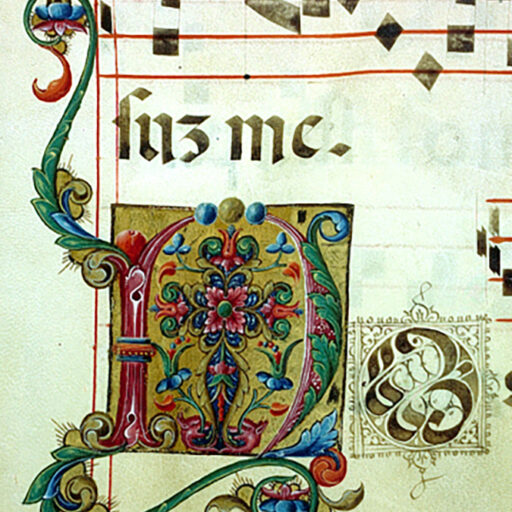 ſuz me.